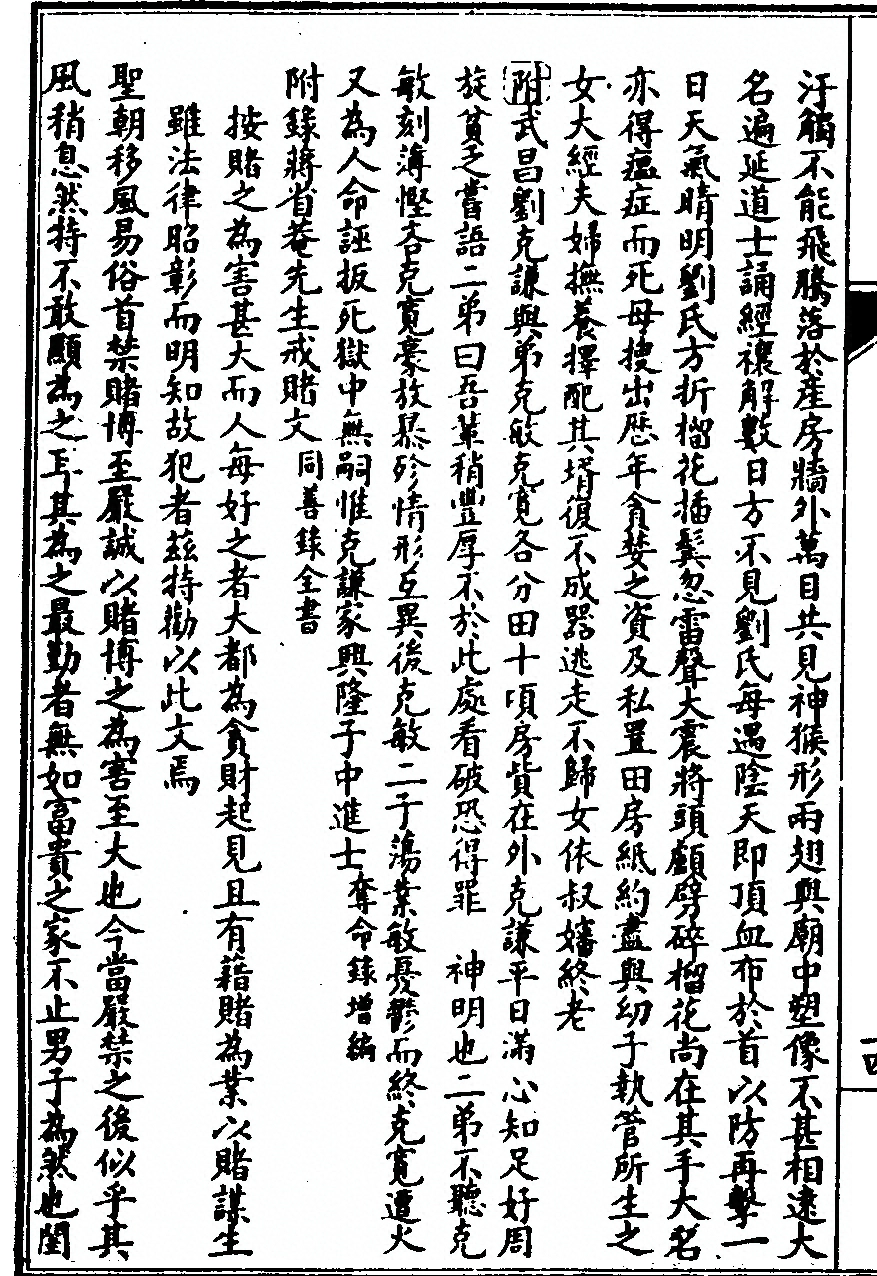 汙觸不能飛騰落於產房牆外萬目共見神猴形兩翅與廟中塑像不甚相遠大
名遍延道士誦經禳解數日方不見劉氏每遇陰天即頂血布於首以防再擊一
日天氣晴明劉氏方折榴花插鬂忽雷聲大震將頭顱劈碎榴花尚在其手大名
亦得瘟症而死母摟出歷年貪婪之資及私置田房紙約盡與幼子執管所生之
女大經夫婦撫養擇配其壻復不成器逃走不歸女依叔嬸終老
附武昌劉克謙與弟克敏克寬各分田十頃房貲在外克謙平日滿心知足好周
旋貧乏嘗語二弟曰吾輩稍豐厚不於此處看破恐得罪 神明也二弟不聽克
敏刻薄慳吝克寬豪放暴殄情形互異後克敏二子蕩業敏憂鬱而終克寬遭火
又為人命誣扳死獄中無嗣惟克謙家興隆子中進士奪命錄增編
附錄蔣省菴先生戒賭文同善錄全書
按賭之為害甚大而人每好之者大都為貪財起見且有藉賭為業以賭謀生
雖法律昭彰而明知故犯者茲持勸以此文焉
聖朝移風易俗首禁賭博至嚴誠以賭博之為害至大也今當嚴禁之後似乎其
風稍息然持不敢顯為之耳其為之最勤者無如富貴之家不止男子為然也閨